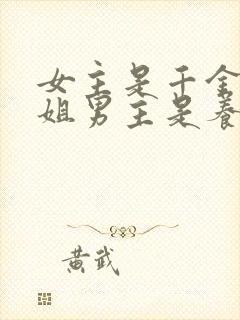 女主是千金
姐男主是养
黄武